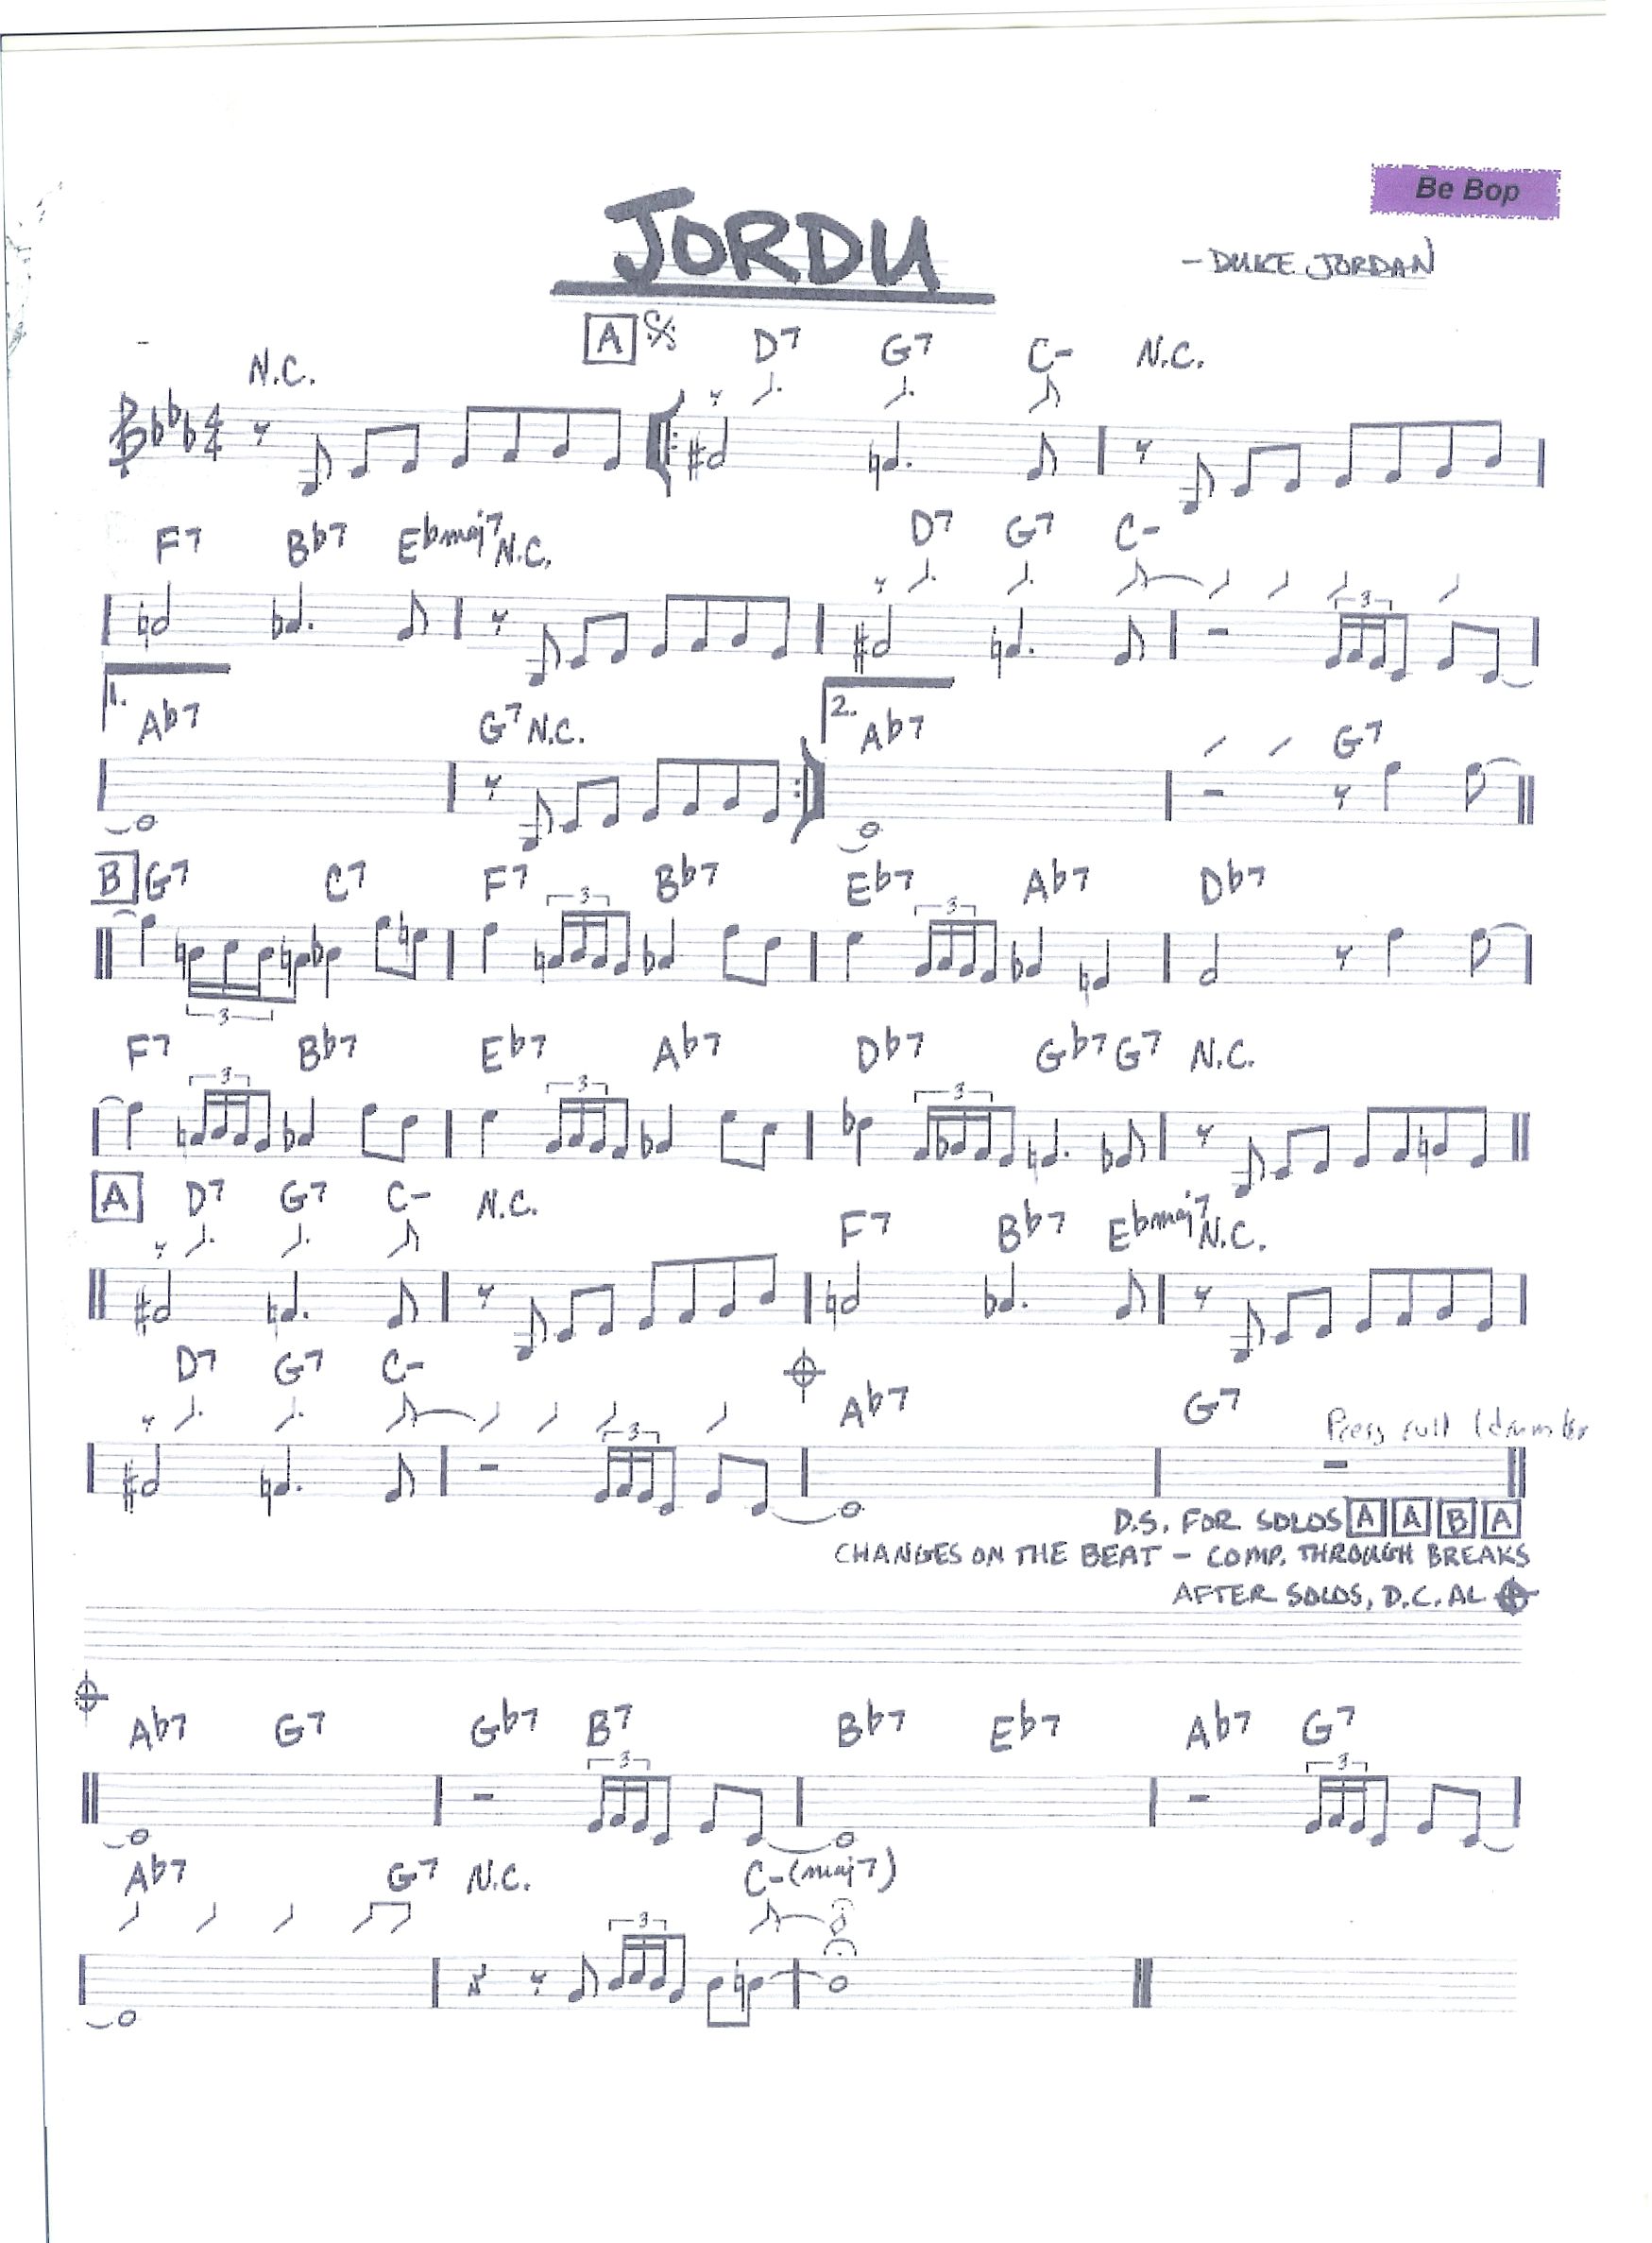 Be Bop
JORDU
- DUKE JORDAN
A D7 G7 C- N.C.
N.C.
F7 Bb7 Ebmaj7 N.C. D7 G7 C-
3
1. Ab7 G7 N.C. 2. Ab7 G7
B G7 C7 F7 Bb7 Eb7 Ab7 Db7
3 3 3
F7 Bb7 Eb7 Ab7 Db7 Gb7 G7 N.C.
3 3 3
A D7 G7 C- N.C. F7 Bb7 Ebmaj7 N.C.
D7 G7 C- Ab7 G7
3
roll
D.S. FOR SOLOS A A B A
CHANGES ON THE BEAT - COMP. THROUGH BREAKS
AFTER SOLOS, D.C. AL
Ab7 G7 Gb7 B7 Bb7 Eb7 Ab7 G7
3 3
Ab7 G7 N.C. C-(maj7)
3